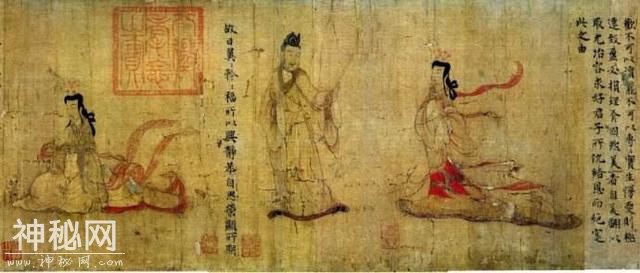 歡不可以瀆寵不可以專實生慢愛則極
遷致盈必損理有固然美者自美翩以
取尤冶容求好君子所仇結恩而絕寔
此之由
故曰翼〻矜〻福所以興靜恭自思榮顯所期
八徵
耄念
之寶
神秘网
www.神秘网.com